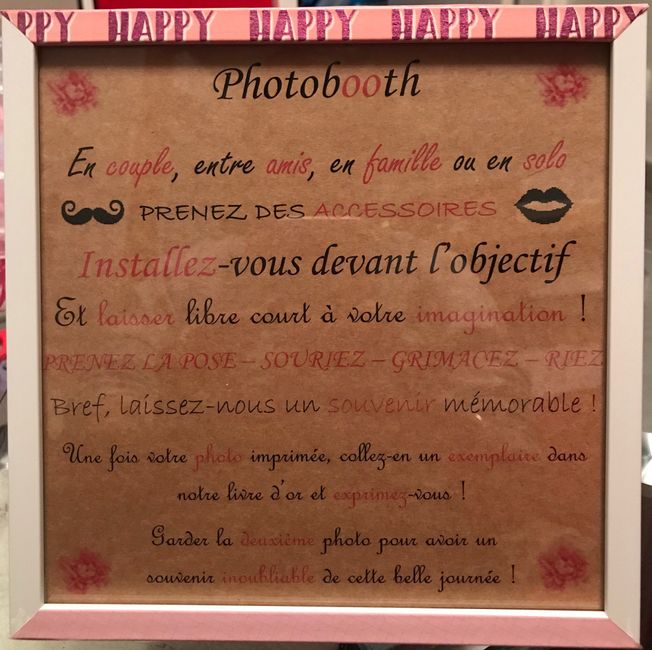 PPY HAPPY HAPPY HAPPY HAPPY
Photobooth
En couple, entre amis, en famille ou en solo
PRENEZ DES ACCESSOIRES
Installez-vous devant l'objectif
Et laisser libre court à votre imagination !
PRENEZ LA POSE – SOURIEZ – GRIMACEZ – RIEZ
Bref, laissez-nous un souvenir mémorable !
Une fois votre photo imprimée, collez-en un exemplaire dans
notre livre d'or et exprimez-vous !
Garder la deuxième photo pour avoir un
souvenir inoubliable de cette belle journée !